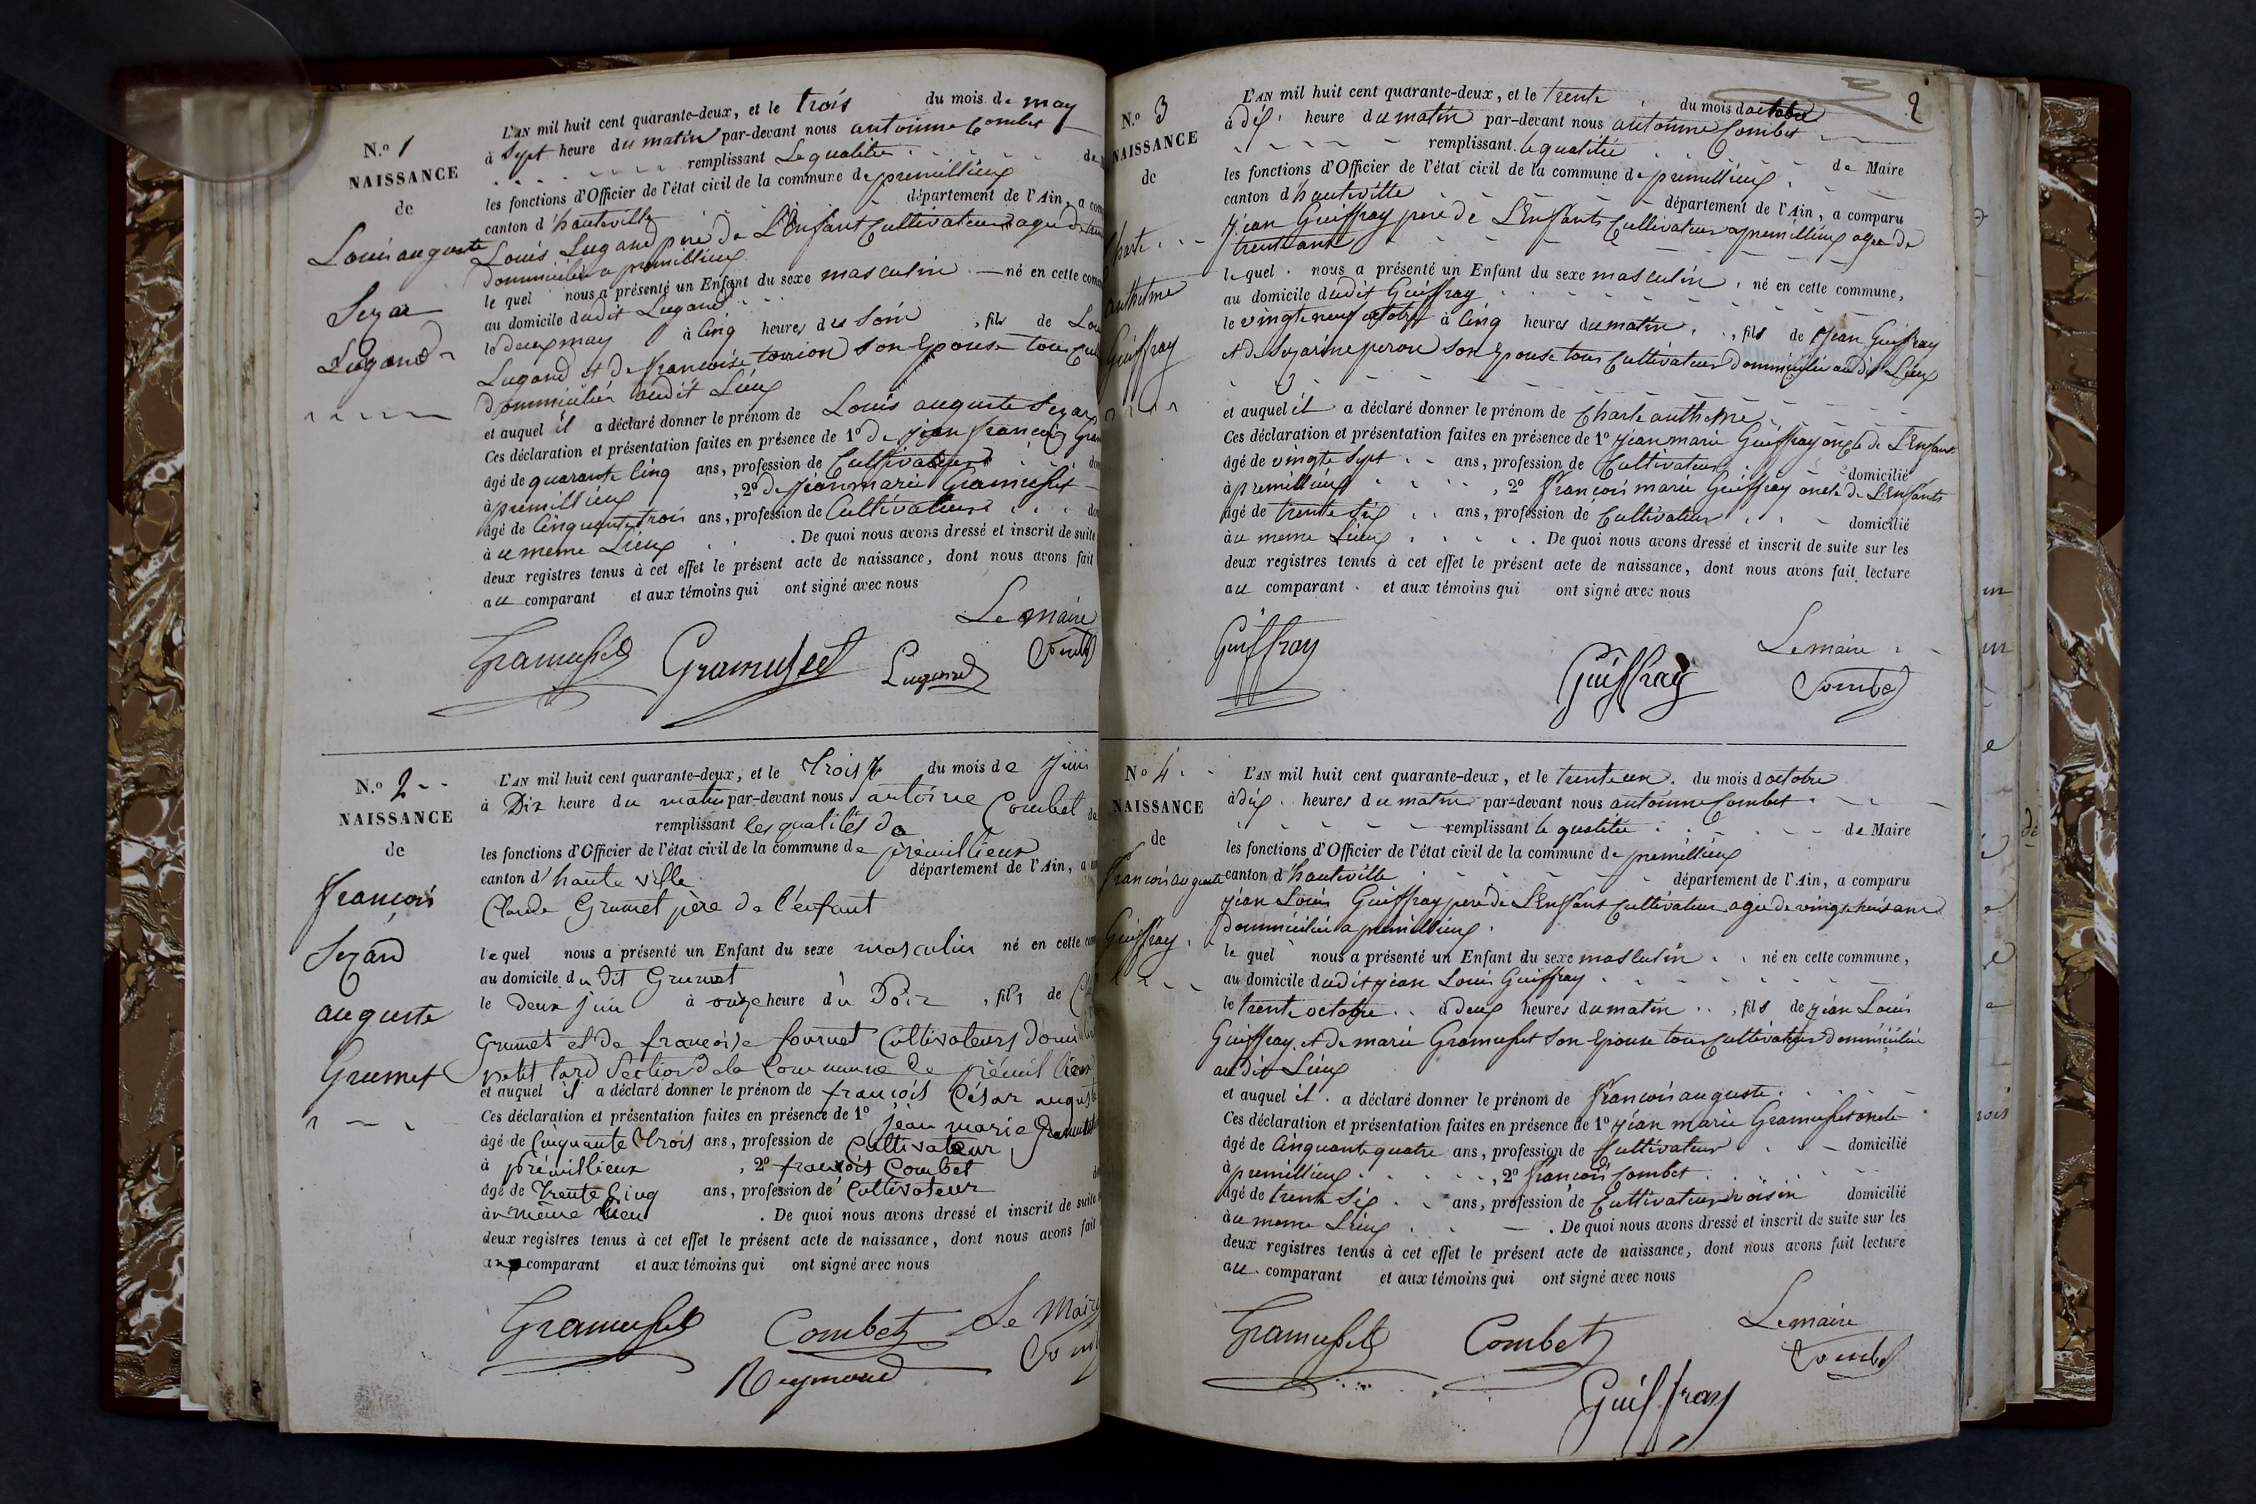 N.o 1
NAISSANCE
de
Louis auguste
Sezar
Lugand
L'AN mil huit cent quarante-deux, et le trois du mois de may
à Sept heure du matin par-devant nous antoinne Combet
remplissant Le qualitée de
les fonctions d'Officier de l'état civil de la commune de premillieux
canton d'hauteville département de l'Ain, a com
Louis Lugand pere de L'Enfant Cultivateur age de
Dommicilié a premillieux
le quel nous a présenté un Enfant du sexe masculin né en cette com
au domicile dudit Lugand
le deux may à Cinq heures du Soir , fils de Lou
Lugand et de francoise torrion Son Epouse tous Cul
Dommicilier audit Lieux
et auquel il a déclaré donner le prénom de Louis auguste Sezar
Ces déclaration et présentation faites en présence de 1º de jean francois Gram
âgé de quarante Cinq ans, profession de Cultivateur do
à premillieux , 2º de jean marie Gramusset
âgé de Cinquante trois ans, profession de Cultivateur do
à u meme Lieux . De quoi nous avons dressé et inscrit de suite
deux registres tenus à cet effet le présent acte de naissance, dont nous avons fait
au comparant et aux témoins qui ont signé avec nous
Le maire
Gramusset Gramusset Lugand Combet
N.o 2
NAISSANCE
de
francois
Sezard
auguste
Grumet
L'AN mil huit cent quarante-deux, et le trois du mois de juin
à Dix heure du matin par-devant nous antoine Combet de
remplissant les qualités de
les fonctions d'Officier de l'état civil de la commune de prémillieux
canton d'haute ville département de l'Ain, a
Claude Grumet père de l'enfant
le quel nous a présenté un Enfant du sexe masculin né en cette com
au domicile du dit Grumet
le deux juin à onze heure du Soir , fils de Cl
Grumet et de francoise fournet Cultivateurs domi
petit Section de la Commune de prémillieux
et auquel il a déclaré donner le prénom de françois César auguste
Ces déclaration et présentation faites en présence de 1º jean marie Gramusset
âgé de Cinquante trois ans, profession de Cultivateur
à prémillieux , 2º françois Combet
âgé de trente Cinq ans, profession de Cultivateur
à u même lieu . De quoi nous avons dressé et inscrit de suite
deux registres tenus à cet effet le présent acte de naissance, dont nous avons fait
au comparant et aux témoins qui ont signé avec nous
Gramusset Combet Le Maire
Reymond Comb
2
N.o 3
NAISSANCE
de
Charle
anthelme
Guiffray
L'AN mil huit cent quarante-deux, et le trente du mois d'octobre
à dix heure du matin par-devant nous antoinne Combet
remplissant le qualitée de Maire
les fonctions d'Officier de l'état civil de la commune de premillieux
canton d'hauteville département de l'Ain, a comparu
jean Guiffray pere de L'Enfants Cultivateur a premillieux agee de
trente ans
le quel nous a présenté un Enfant du sexe masculin né en cette commune,
au domicile dudit Guiffray
le vingte neuf octobre à Cinq heures du matin , fils de jean Guiffray
et de Suzarine peron Son Epouse tous Cultivateur Dommicilié audit Lieux
et auquel il a déclaré donner le prénom de Charle anthelme
Ces déclaration et présentation faites en présence de 1º jean marie Guiffray oncle de L'Enfant
âgé de vingte Sept ans, profession de Cultivateur domicilié
à premillieux , 2º francois marie Guiffray oncle de L'Enfants
âgé de trente Six ans, profession de Cultivateur domicilié
à u meme Lieux . De quoi nous avons dressé et inscrit de suite sur les
deux registres tenus à cet effet le présent acte de naissance, dont nous avons fait lecture
au comparant et aux témoins qui ont signé avec nous
Guiffray Guiffray Le maire
Combet
No 4
NAISSANCE
de
francois auguste
Guiffray
L'AN mil huit cent quarante-deux, et le trente un du mois d'octobre
à dix heures du matin par-devant nous antoinne Combet
remplissant le qualitée de Maire
les fonctions d'Officier de l'état civil de la commune de premillieux
canton d'hauteville département de l'Ain, a comparu
jean Louis Guiffray pere de L'Enfant Cultivateur age de vingt huis ans
Dommicilié a premillieux
le quel nous a présenté un Enfant du sexe masculin né en cette commune,
au domicile dudit jean Louis Guiffray
le trente octobre à deux heures du matin , fils de jean Louis
Guiffray et de marie Gramusset Son Epouse tous Cultivateur Dommicilié
audit Lieux
et auquel il a déclaré donner le prénom de francois auguste
Ces déclaration et présentation faites en présence de 1º jean marie Gramusset oncle
âgé de Cinquante quatre ans, profession de Cultivateur domicilié
à premillieux , 2º francois Combet
âgé de trente Six ans, profession de Cultivateur voisin domicilié
à u meme Lieux . De quoi nous avons dressé et inscrit de suite sur les
deux registres tenus à cet effet le présent acte de naissance, dont nous avons fait lecture
au comparant et aux témoins qui ont signé avec nous
Gramusset Combet Le maire
Guiffray Combet